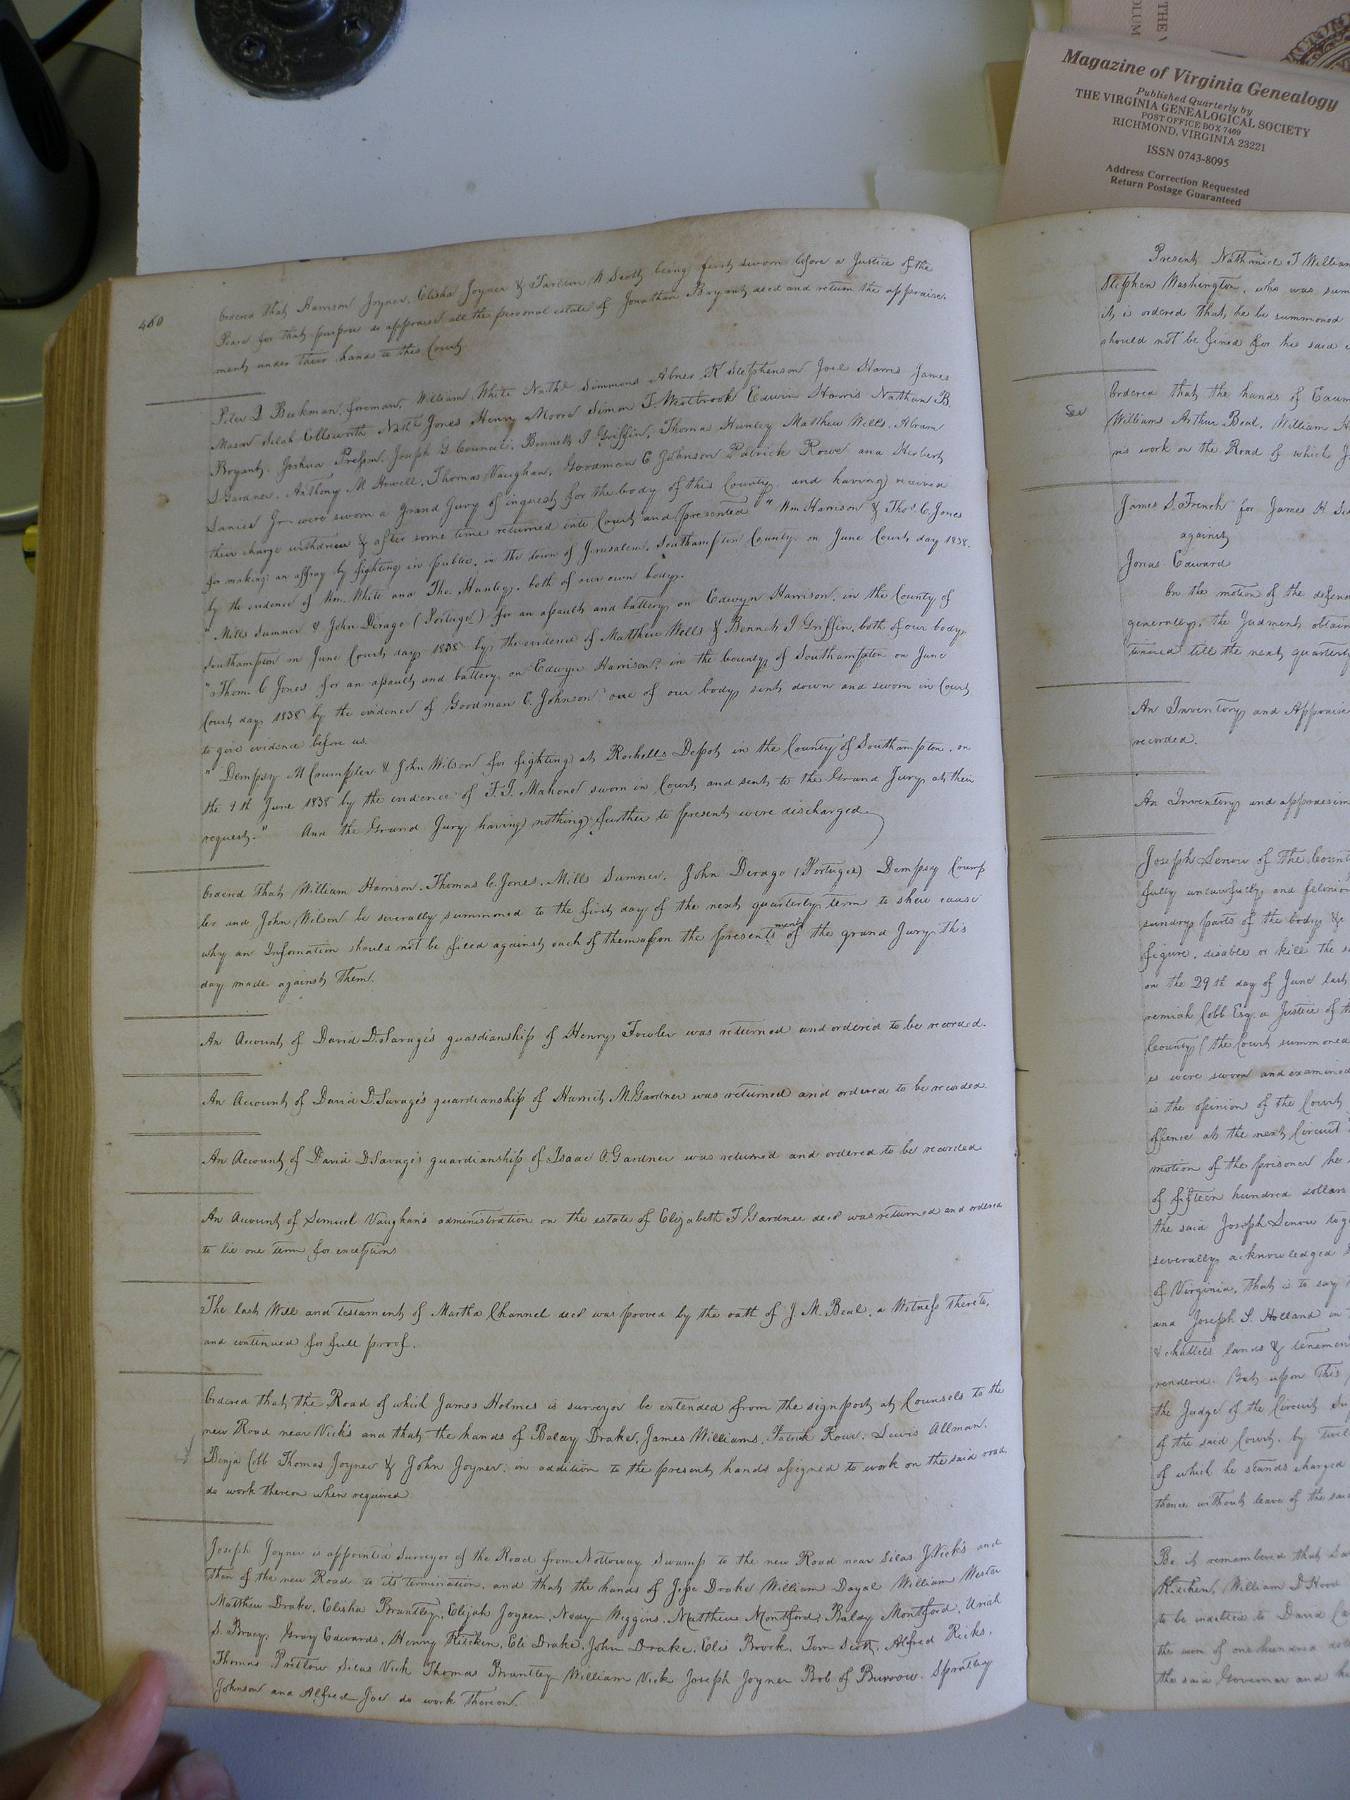 THE V
OLUM
Magazine of Virginia Genealogy
Published Quarterly by
THE VIRGINIA GENEALOGICAL SOCIETY
POST OFFICE BOX 7469
RICHMOND, VIRGINIA 23221
ISSN 0743-8095
Address Correction Requested
Return Postage Guaranteed
460
Ordered that Harrison Joyner, Elisha Joyner & Tarlton W Scott being first sworn before a Justice of the
Peace for that purpose do appraise all the personal estate of Jonathan Bryant decd and return the appraise-
ment under their hands to this Court
Peter D Beekman, foreman, William White Nathl Simmons Abner K Stephenson Joel Harris James
Mason Selah Ellsworth Nathl Jones Henry Moore Simon T. Westbrook Edwin Harris Nathan B.
Bryant. Joshua Pretlow, Joseph G Council, Bennett I Griffin, Thomas Hunley Matthew Wills, Abram
S Gardner, Anthony M Howell, Thomas Vaughan, Goodman C Johnson Patrick Rowe and Herbert
Daniel Jr were sworn a Grand Jury of inquest for the body of this County and having received
their charge withdrew & after some time returned into Court and presented " Wm Harrison & Thos C. Jones
for making an affray by fighting in public, in the town of Jerusalem, Southampton County on June Court day 1838.
by the evidence of Wm. White and Tho. Hunley, both of our own body.
" Mills Sumner & John Derago (Portugee) for an assault and battery on Edwyn Harrison, in the County of
Southampton on June Court day 1838 by the evidence of Matthew Wells & Bennett I Griffin, both of our body.
" Thom. C Jones for an assault and battery on Edwyn Harrison, in the county of Southampton on June
Court day 1838 by the evidence of Goodman C. Johnson one of our body sent down and sworn in Court
to give evidence before us.
" Dempsey M Crumpler & John Wilson for fighting at Rochells Depot in the County of Southampton, on
the 9th June 1838 by the evidence of F. T. Mahone sworn in Court and sent to the Grand Jury at their
request." And the Grand Jury having nothing further to present were discharged.
Ordered that William Harrison, Thomas C. Jones, Mills Sumner, John Derago (Portugee) Dempsey Crump
ler and John Wilson be severally summoned to the first day of the next quarterly term to shew cause
why an Information should not be filed against each of them upon the presentments of the grand Jury this
day made against them.
An Account of David D. Savage's guardianship of Henry Fowler was returned and ordered to be recorded.
An Account of David D. Savage's guardianship of Harriet M. Gardner was returned and ordered to be recorded
An Account of David D. Savage's guardianship of Isaac A. Gardner was returned and ordered to be recorded
An Account of Lemuel Vaughan's administration on the estate of Elizabeth T Gardner decd was returned and ordered
to lie one term for exceptions
The last Will and testament of Martha Channel decd was proved by the oath of J. M. Beal, a Witness thereto,
and continued for full proof.
Ordered that the Road of which James Holmes is surveyor be extended from the signpost at Counsels to the
new Road near Vick's and that the hands of Balay Drake, James Williams, Patrick Rowe, Lewis Allman,
Benja Cobb Thomas Joyner & John Joyner, in addition to the present hands assigned to work on the said road,
do work thereon when required
Joseph Joyner is appointed Surveyor of the Road from Nottoway Swamp to the new Road near Silas J Vick's and
then of the new Road to its termination, and that the hands of Jesse Drake William Doyal William Wester
Matthew Drake, Elisha Brantley, Elijah Joyner, Nedy Wiggins, Matthew Montford, Balay Montford, Uriah
S. Bracy. Gray Edwards, Henry Kitchen, Eli Drake, John Drake, Elis Brock, Tom Scott, Alfred Ricks,
Thomas Pretlow Silas Vick Thomas Brantley William Vick Joseph Joyner Bob of Burrow. Spratley
Johnson and Alfred Joe do work thereon.
Present Nathaniel T William
Stephen Washington, who was sum
it is ordered that he be summoned
should not be fined for his said
Ordered that the hands of
Williams Arthur Beal, William
work on the Road of which J
James S. French for James H
against
Jonas Edward
On the motion of the defen
generally, the Judment obtain
tinued till the next quarterly
An Inventory and Appraise
recorded.
An Inventory and appraisem
Joseph Lenow of the Count
fully unlawfully and felonio
sundry parts of the body &c
figure, disable or kill the s
on the 29th day of June last
remiah Cobb Esq. a Justice of th
County (the Court summoned
were sworn and examined
is the opinion of the Court
offence at the next Circuit
motion of the prisoner he
of fifteen hundred dollars
the said Joseph Lenow tog
severally acknowledged
of Virginia, that is to say
and Joseph S. Holland in
& chattels lands & tenemen
rendered. But upon this
the Judge of the Circuit Su
of the said Court, by
of which he stands charged
thence without leave of the said
Be it remembered that
Kitchen, William D Hood
to be indebted to David Ca
the sum of one hundred
the said Governor and h